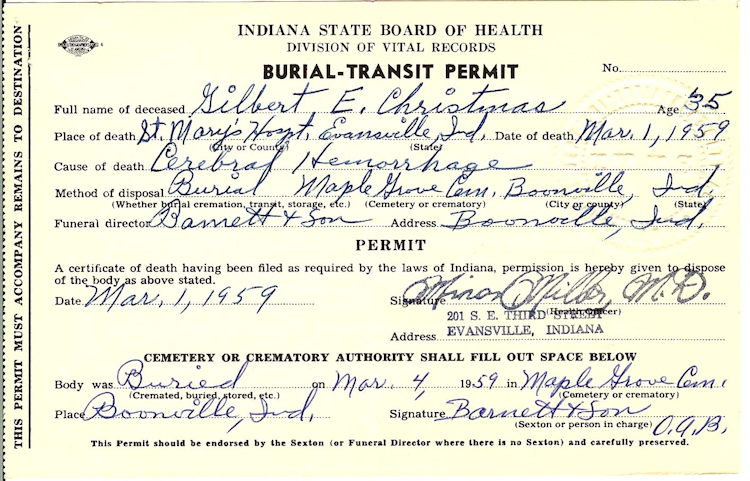 INDIANA STATE BOARD OF HEALTH
DIVISION OF VITAL RECORDS
BURIAL-TRANSIT PERMIT
No.
Full name of deceased Gilbert E. Christmas Age 35
Place of death St. Mary's Hospt. Evansville, Ind. Date of death Mar. 1, 1959
(City or County) (State)
Cause of death Cerebral Hemorrhage
Method of disposal Burial Maple Grove Cem. Boonville, Ind.
(Whether burial cremation, transit, storage, etc.) (Cemetery or crematory) (City or county) (State)
Funeral director Barnett & Son Address Boonville, Ind.
PERMIT
A certificate of death having been filed as required by the laws of Indiana, permission is hereby given to dispose
of the body as above stated.
Date Mar. 1, 1959 Signature Minor Miller, M.D.
(Health Officer)
201 S. E. THIRD STREET
Address EVANSVILLE, INDIANA
CEMETERY OR CREMATORY AUTHORITY SHALL FILL OUT SPACE BELOW
Body was Buried on Mar. 4, 1959 in Maple Grove Cem.
(Cremated, buried, stored, etc.) (Cemetery or crematory)
Place Boonville, Ind. Signature Barnett & Son
(Sexton or person in charge) O.A.B.
This Permit should be endorsed by the Sexton (or Funeral Director where there is no Sexton) and carefully preserved.
THIS PERMIT MUST ACCOMPANY REMAINS TO DESTINATION